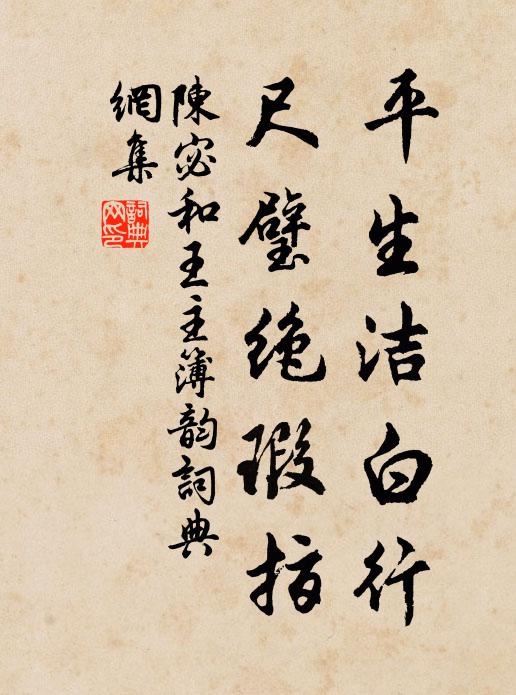 平生洁白行
尺璧绝瑕指
陳宓和王主簿韵詞典
網集
詞典
文印